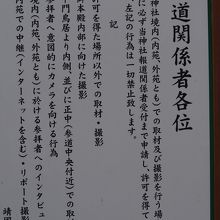 道関係者各位
神社境内（内苑、外苑とも）での取材及び撮影を行う場
に必ず当神社報道関係者受付まで申請し、許可を得て
左記の行為は一切禁止致します。
記
許可を得た場所以外での取材・撮影
御本殿内部に向けた撮影
門鳥居より内側、並びに正中（参道中央付近）での取
参拝者へ意図的にカメラを向ける行為
境内（内苑、外苑とも）に於ける参拝者へのインタビュ
内苑での中継（インターネットを含む）・リポート撮影
靖国